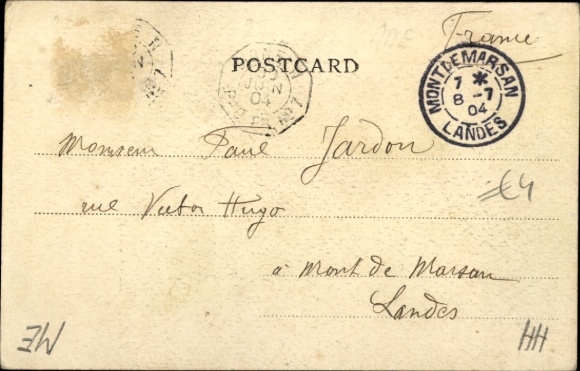 France
POSTCARD
MONT DE MARSAN
7 *
8 -7
04
LANDES
JUIN
04
Monsieur Paul Jardon
€4
rue Victor Hugo
à Mont de Marsan
Landes
ME
HH